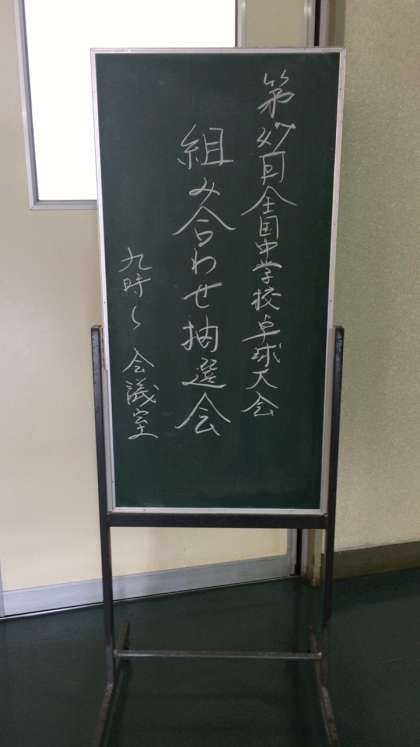 第47回全国中学校卓球大会
組み合わせ抽選会
九時〜会議室